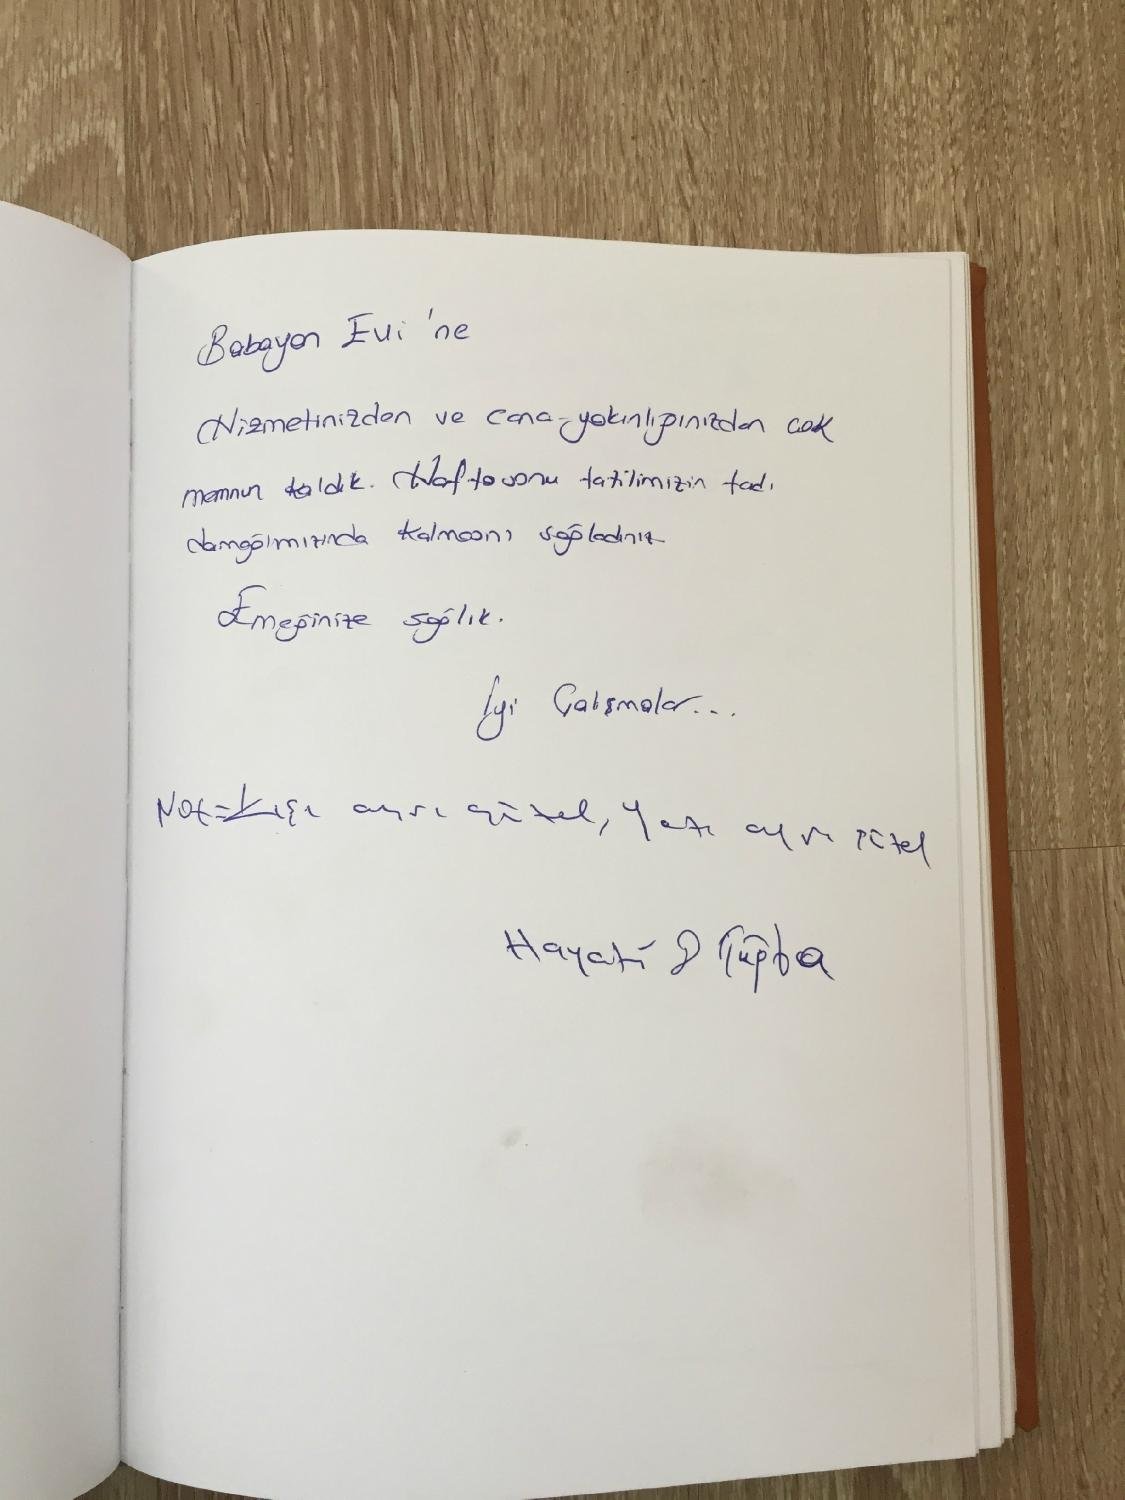 Babayan Evi'ne
Hizmetinizden ve cana-yakınlığınızdan çok
memnun kaldık. Haftasonu tatilimizin tadı
damağımızında kalmasını sağladınız
Emeğinize sağlık.
İyi Çalışmalar...
Not= Kışı ayrı güzel, Yazı ayrı güzel
Hayati & Tuğba